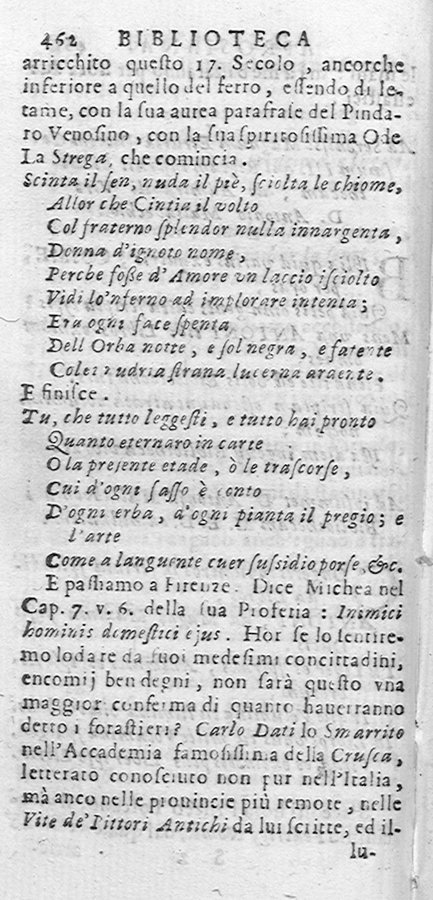 462 BIBLIOTECA
arricchito questo 17. Secolo , ancorche
inferiore a quello del ferro, essendo di le-
tame, con la sua aurea parafrase del Pinda-
ro Venosino , con la sua spiritosissima Ode
La Strega, che comincia .
Scinta il sen, nuda il piè, sciolta le chiome,
Allor che Cintia il volto
Col fraterno splendor nulla innargenta ,
Donna d'ignoto nome,
Perche foße d'Amore vn laccio isciolto
Vidi lo'nferno ad implorare intenta ;
Era ogni face spenta
Dell Orba notte , e sol negra , e fatente
Colei nudria strana lucerna ardente .
E finisce .
Tu, che tutto leggesti , e tutto hai pronto
Quanto eternaro in carte
O la presente etade , ò le trascorse ,
Cui d'ogni sasso è conto
D'ogni erba, d'ogni pianta il pregio ; e
l'arte
Come a languente cuer sussidio porse, &c.
E passiamo a Firenze. Dice Michea nel
Cap. 7. v. 6. della sua Profetia : Inimici
hominis domestici ejus . Hor se lo sentire-
mo lodare da suoi medesimi concittadini,
encomij ben degni , non sarà questo vna
maggior conferma di quanto hauerranno
detto i forastieri ? Carlo Dati lo Smarrito
nell'Accademia famosissima della Crusca,
letterato conosciuto non pur nell'Italia,
mà anco nelle prouincie più remote , nelle
Vite de' Pittori Antichi da lui scritte, ed il-
lu-